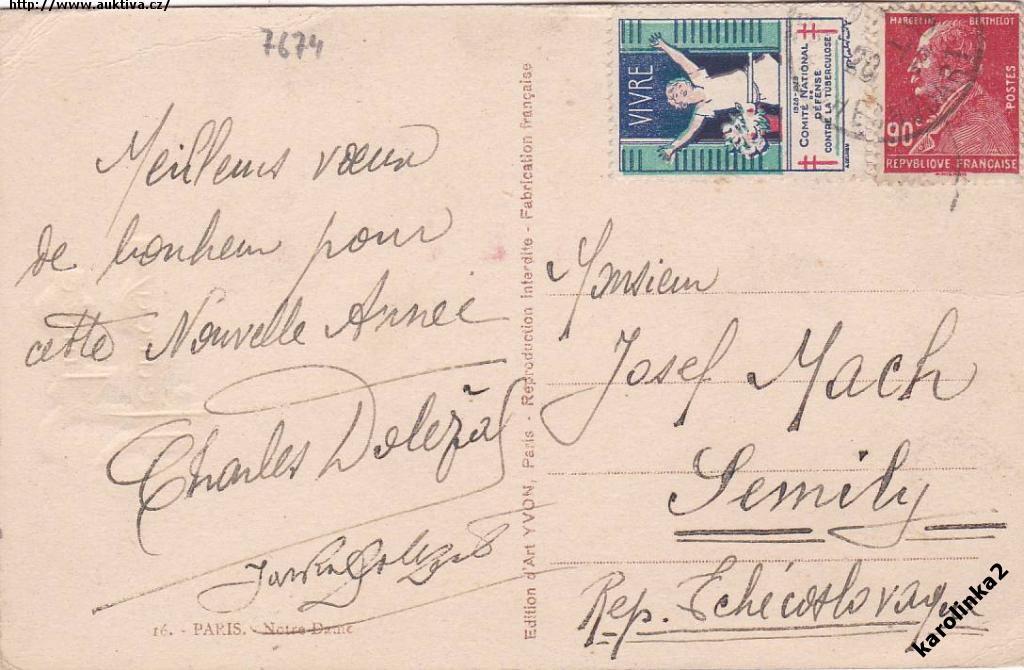 http://www.auktiva.cz/
7674
Meilleurs vœux
de bonheur pour
cette Nouvelle Année
Charles Doležal
16. - PARIS. - Notre-Dame
Edition d'Art YVON, Paris - Reproduction Interdite - Fabrication française
VIVRE
1928-1929
COMITÉ NATIONAL
DE
DÉFENSE
CONTRE LA TUBERCULOSE
MARCELIN BERTHELOT
POSTES
90c
REPVBLIQVE FRANÇAISE
Monsieur
Josef Mach
Semily
Rep. Tchécoslovaque
karolinka2